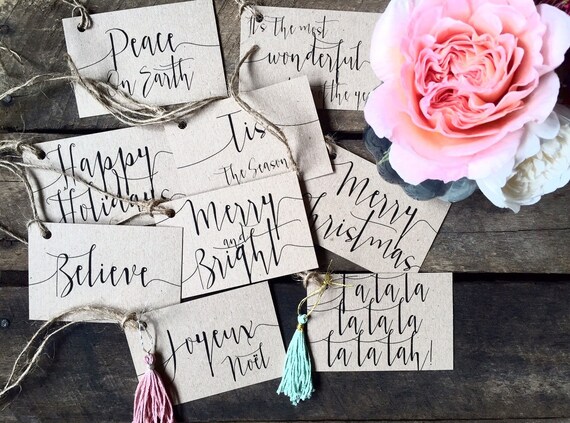 Peace
On Earth
It's the most
wonderful
of the year
Happy
Holidays
Tis
The Season
Merry
Christmas
Merry
and
Bright
Believe
Joyeux
Noël
Fa la la
la la la
la la lah!